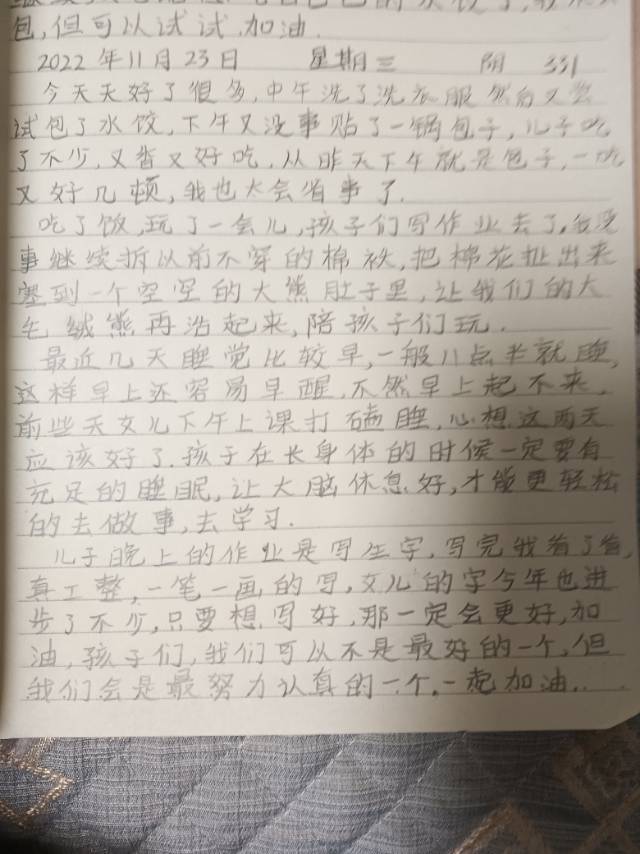 包,但可以试试,加油.
2022年11月23日 星期三 阴 331
今天天好了很多,中午洗了洗衣服然后又尝
试包了水饺,下午又没事贴了一锅包子,儿子吃
了不少,又香又好吃,从昨天下午就是包子,一吃
又好几顿,我也太会省事了.
吃了饭,玩了一会儿,孩子们写作业去了,我没
事继续拆以前不穿的棉袄,把棉花扯出来
塞到一个空空的大熊肚子里,让我们的大
毛绒熊再活起来,陪孩子们玩.
最近几天睡觉比较早,一般八点半就睡,
这样早上还容易早醒,不然早上起不来,
前些天女儿下午上课打磕睡,心想这两天
应该好了.孩子在长身体的时候一定要有
充足的睡眠,让大脑休息好,才能更轻松
的去做事,去学习.
儿子晚上的作业是写生字,写完我看了看,
真工整,一笔一画的写,女儿的字今年也进
步了不少,只要想写好,那一定会更好,加
油,孩子们,我们可以不是最好的一个,但
我们会是最努力认真的一个.一起加油..